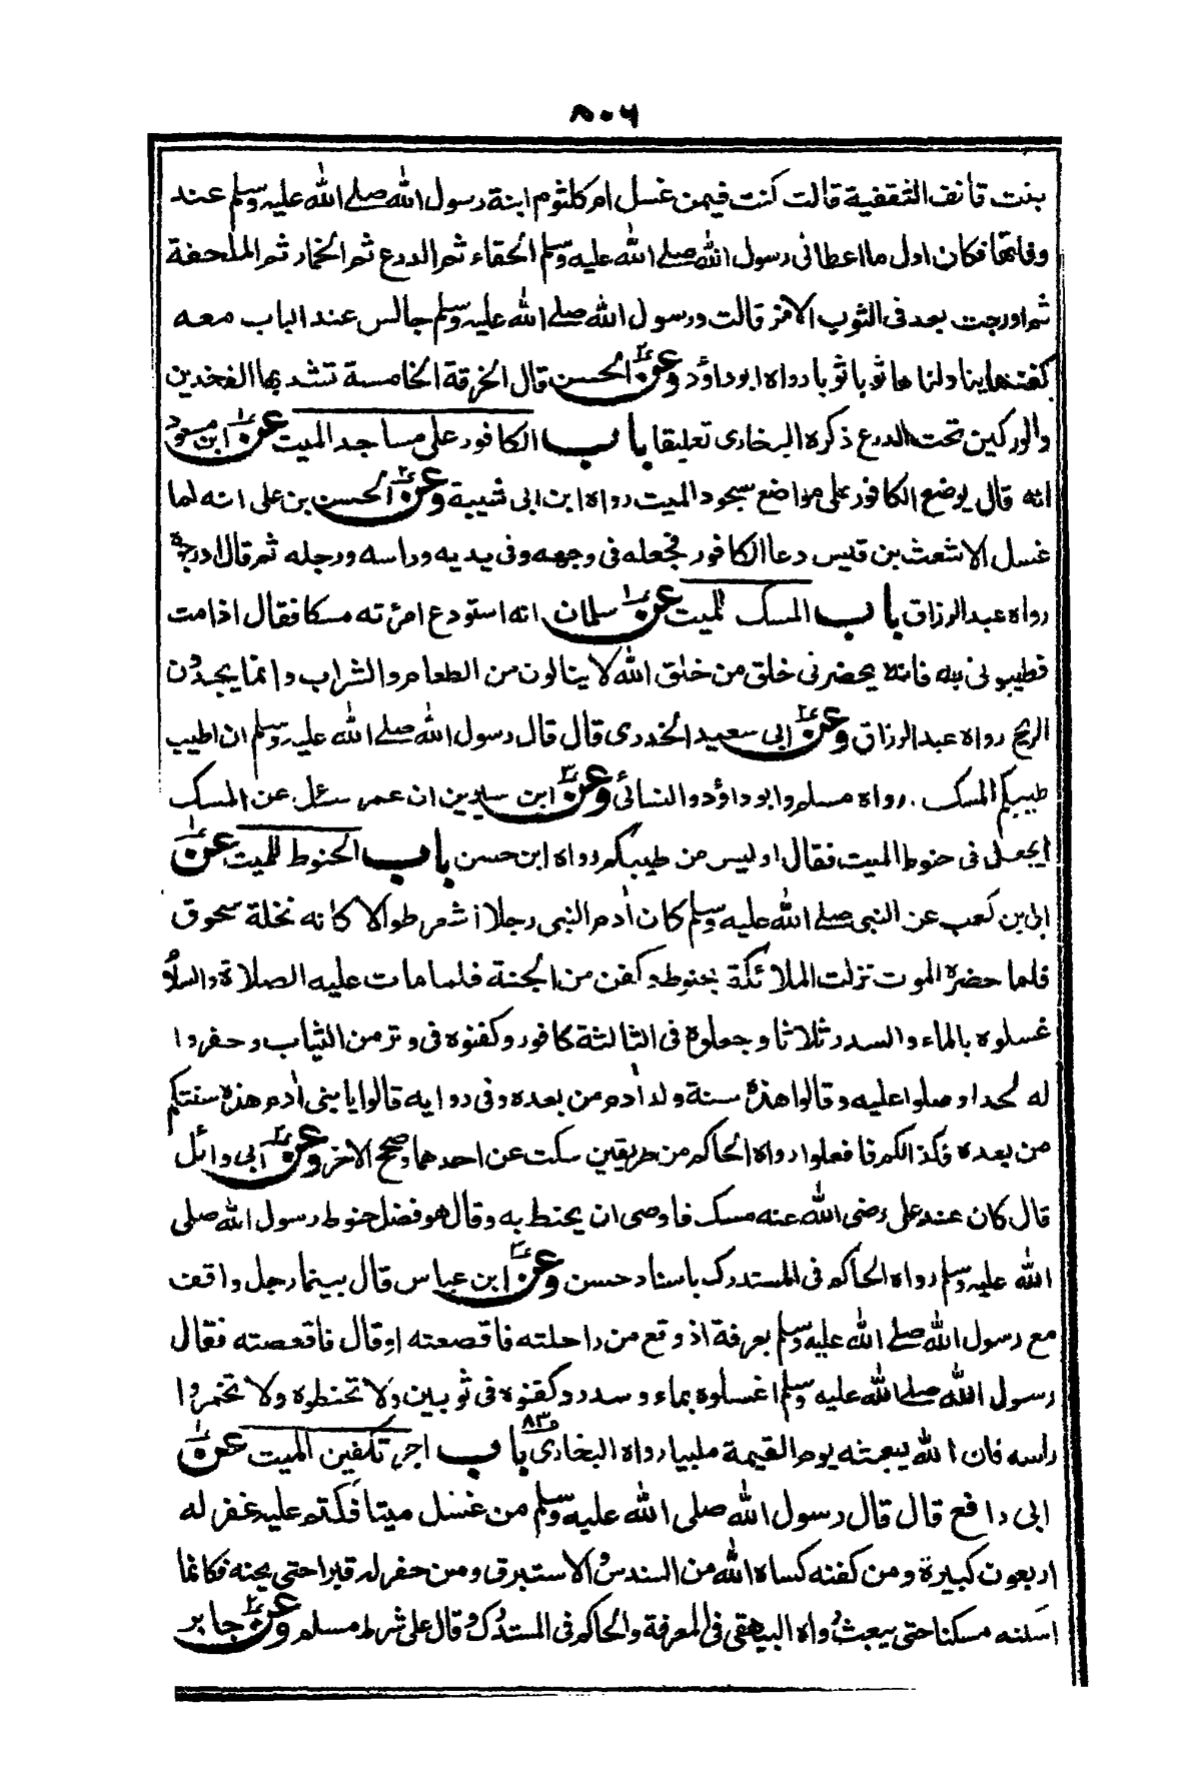 ٨٠٦
بنت قانف الثقفية قالت كنت فيمن غسل ام كلثوم ابنة رسول الله صلى الله عليه وسلم عند
وفاتها فكان اول ما اعطانى رسول الله صلى الله عليه وسلم الحقاء ثم الدرع ثم الخمار ثم الملحفة
ثم ادرجت بعد فى الثوب الاخر قالت ورسول الله صلى الله عليه وسلم جالس عند الباب معه
كفنها يناولناها ثوبا ثوبا رواه ابو داؤد وعن الحسن قال الخرقة الخامسة تشد بها الفخذين
والوركين تحت الدرع ذكره البخارى تعليقا باب الكافور على مساجد الميت عن ابن مسعود
انه قال يوضع الكافور على مواضع سجود الميت رواه ابن ابى شيبة وعن الحسن بن على انه لما
غسل الاشعث بن قيس دعا الكافور فجعله فى وجهه وفى يديه وراسه ورجله ثم قال ادرجوه
رواه عبد الرزاق باب المسك للميت عن سلمان انه استودع امرئته مسكا فقال اذا مت
فطيبونى به فانه يحضرنى خلق من خلق الله لا ينالون من الطعام والشراب وانما يجدون
الريح رواه عبد الرزاق وعن ابى سعيد الخدرى قال قال رسول الله صلى الله عليه وسلم ان اطيب
طيبكم المسك . رواه مسلم وابو داؤد والنسائى وعن ابن سيرين ان عمر سئل عن المسك
ايجعل فى حنوط الميت فقال اوليس من طيبكم رواه ابن حسن باب الحنوط للميت عن
ابى بن كعب عن النبى صلى الله عليه وسلم كان أدم النبى رجلا اشمر طوالا كانه نخلة سحوق
فلما حضره الموت نزلت الملائكة بحنوطه وكفن من الجنة فلما مات عليه الصلاة والسلام
غسلوه بالماء والسدر ثلاثا وجعلوه فى الثالثة كافور وكفنوه فى وتر من الثياب وحفروا
له لحدا وصلوا عليه وقالوا هذه سنة ولد أدم من بعده وفى رواية قالوا يا بنى أدم هذه سنتكم
من بعده فكذالكم فافعلوا رواه الحاكم من طريقين سكت عن احدهما وصحح الاخر وعن ابى وائل
قال كان عند على رضى الله عنه مسك فاوصى ان يحنط به وقال هو فضل حنوط رسول الله صلى
الله عليه وسلم رواه الحاكم فى المستدرك باسناد حسن وعن ابن عباس قال بينما رجل واقف
مع رسول الله صلى الله عليه وسلم بعرفة اذ وقع من راحلته فاقصعته او قال فاقعصته فقال
رسول الله صلى الله عليه وسلم اغسلوه بماء وسدر وكفنوه فى ثوبين ولا تحنطوه ولا تخمروا
راسه فان الله يبعثه يوم القيمة ملبيا رواه البخارى باب اجر تكفين الميت عن
ابى رافع قال قال رسول الله صلى الله عليه وسلم من غسل ميتا فكتم عليه غفر له
اربعون كبيرة ومن كفنه كساه الله من السندس والاستبرق ومن حفر له قبرا حتى يجنه فكانما
اسكنه مسكنا حتى يبعث رواه البيهقى فى المعرفة والحاكم فى المستدرك وقال على شرط مسلم وعن جابر